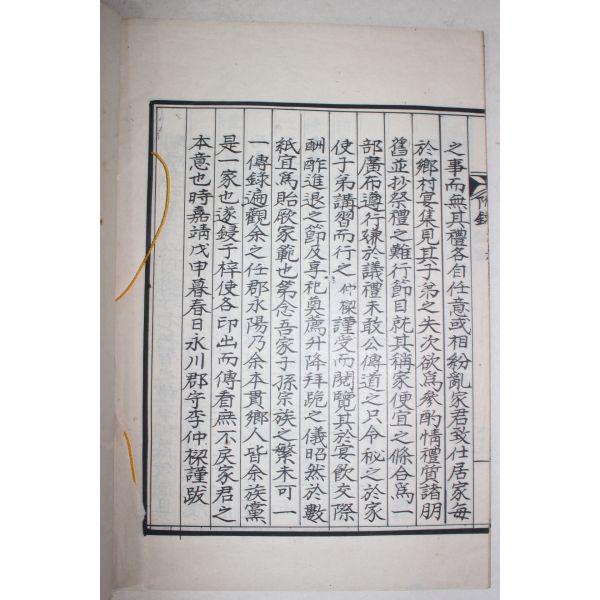 之事而無其禮各自任意或相紛亂家君致仕居家每
於鄕村宴集見其子弟之失次欲爲參酌情禮質諸朋
舊並抄祭禮之難行節目就其稱家便宜之條合爲一
部廣布遵行嫌於議禮未敢公傳道之只令秘之於家
使子弟講習而行之 仲樑謹受而閱覽其於宴飮交際
酬酢進退之節及享祀奠薦升降拜跪之儀昭然於數
紙宜爲貽厥家範也第念吾家子孫宗族之繁未可一
一傳錄遍觀余之任郡永陽乃余本貫鄕人皆余族黨
是一家也遂鋟于梓使各印出而傳看無不戾家君之
本意也時嘉靖戊申暮春日永川郡守李仲樑謹跋
附錄